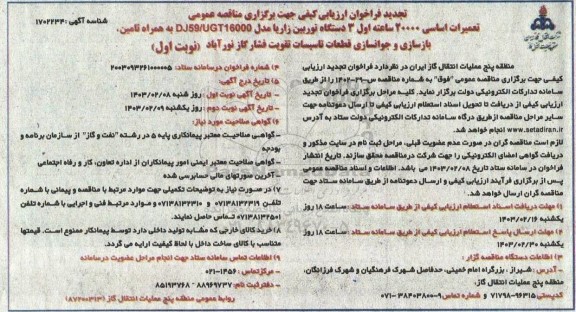 تجدید فراخوان ارزیابی کیفی جهت برگزاری مناقصه عمومی
شناسه آگهی: ۱۷۰۲۲۳۴
تعمیرات اساسی ۴۰۰۰۰ ساعته اول ۳ دستگاه توربین زاریا مدل DJ59/UGT16000 به همراه تامین،
بازسازی و جوانسازی قطعات تاسیسات تقویت فشار گاز نورآباد (نوبت اول)
منطقه پنج عملیات انتقال گاز ایران در نظر دارد فراخوان تجدید ارزیابی
کیفی جهت برگزاری مناقصه عمومی "فوق" به شماره مناقصه س-۲۹-۱۴۰۲ را از طریق
سامانه تدارکات الکترونیکی دولت برگزار نماید. کلیه مراحل برگزاری فراخوان تجدید
ارزیابی کیفی از دریافت تا تحویل اسناد استعلام ارزیابی کیفی تا ارسال دعوتنامه جهت
سایر مراحل مناقصه از طریق درگاه سامانه تدارکات الکترونیکی دولت ستاد به آدرس
www.setadiran.ir انجام خواهد شد.
لازم است مناقصه گران در صورت عدم عضویت قبلی، مراحل ثبت نام در سایت مذکور و
دریافت گواهی امضای الکترونیکی را جهت شرکت در مناقصه محقق سازند. تاریخ انتشار
فراخوان در سامانه ستاد تاریخ ۱۴۰۳/۰۲/۰۸ می باشد. اطلاعات و اسناد مناقصه عمومی
پس از برگزاری فرآیند ارزیابی کیفی و ارسال دعوتنامه از طریق سامانه ستاد جهت
مناقصه گران ارسال خواهد شد.
۱) مهلت دریافت اسناد استعلام ارزیابی کیفی از طریق سامانه ستاد: ساعت ۱۸ روز
یکشنبه ۱۴۰۳/۰۲/۱۶
۲) مهلت ارسال پاسخ استعلام ارزیابی کیفی از طریق سامانه ستاد: ساعت ۱۸ روز
یکشنبه ۱۴۰۳/۰۲/۳۰
۳) اطلاعات دستگاه مناقصه گزار:
- آدرس: شیراز، بزرگراه امام خمینی، حدفاصل شهرک فرهنگیان و شهرک فرزانگان،
منطقه پنج عملیات انتقال گاز.
کدپستی ۹۶۳۱۵-۷۱۷۹۸ و شماره تماس: ۹-۳۸۴۰۳۸۰۰-۰۷۱
۴) شماره فراخوان در سامانه ستاد: ۲۰۰۳۰۹۳۲۶۱۰۰۰۰۰۵
۵) تاریخ درج آگهی:
- تاریخ آگهی نوبت اول: روز شنبه ۱۴۰۳/۰۲/۰۸
- تاریخ آگهی نوبت دوم: روز یکشنبه ۱۴۰۳/۰۲/۰۹
۶) گواهی صلاحیت مورد نیاز:
- گواهی صلاحیت معتبر پیمانکاری پایه ۵ در رشته "نفت و گاز" از سازمان برنامه و
بودجه
- گواهی صلاحیت معتبر ایمنی امور پیمانکاران از اداره تعاون، کار و رفاه اجتماعی
- آخرین صورتهای مالی حسابرسی شده
۷) در صورت نیاز به توضیحات تکمیلی جهت موارد مرتبط با مناقصه و پیمانی با شماره
تلفن ۰۷۱۳۸۱۳۲۳۱۹ و ۰۷۱۳۸۱۳۲۳۱۰ و موارد مرتبط فنی و اجرایی با شماره تلفن
۰۷۱۳۸۱۳۲۵۰۱ تماس حاصل نمایند.
۸) خرید کالای خارجی که مشابه تولید داخلی دارد توسط پیمانکار ممنوع است. قیمتها
متناسب با کالای ساخت داخل با لحاظ کیفیت ارایه می گردد.
۹) اطلاعات تماس سامانه ستاد جهت انجام مراحل عضویت در سامانه
- مرکز تماس: ۱۴۵۶-۰۲۱
- دفتر ثبت نام: ۸۸۹۶۹۷۳۷ - ۸۵۱۹۳۷۶۸
روابط عمومی منطقه پنج عملیات انتقال گاز (۸۷۲۰۰۳۱۳)